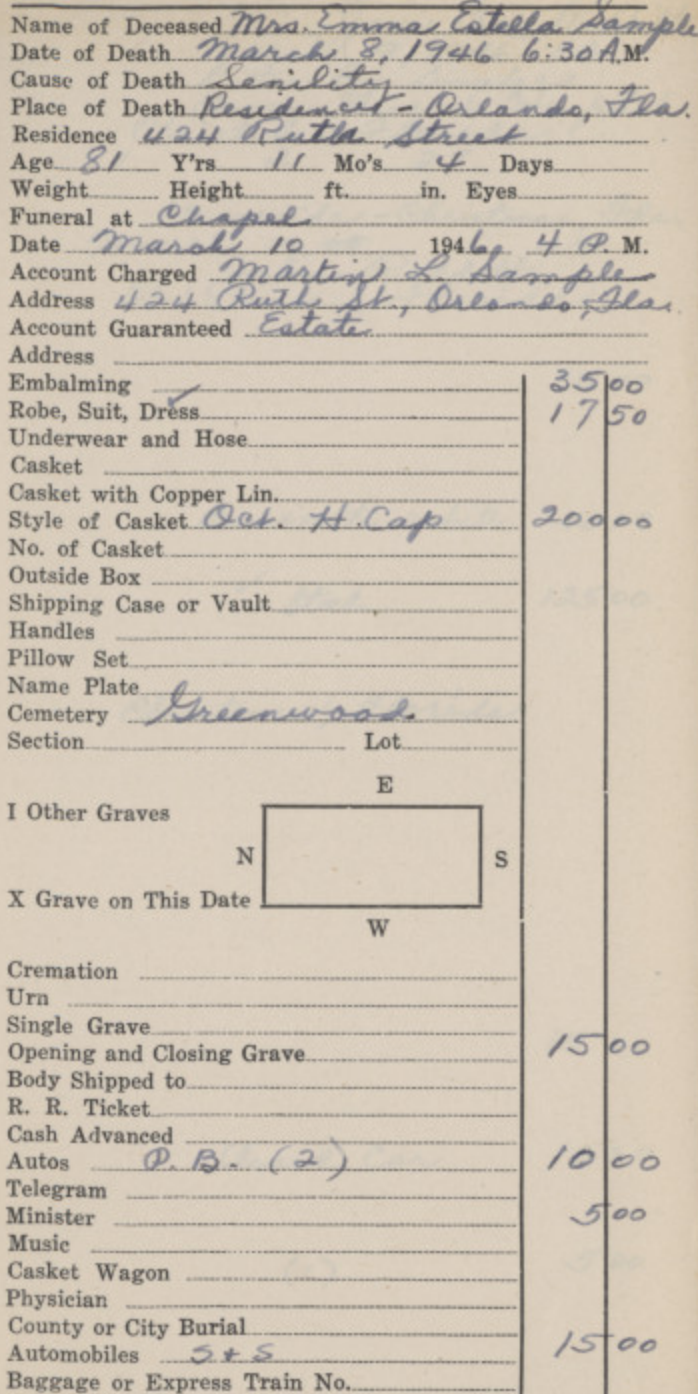 Name of Deceased Mrs. Emma Estella Sample
Date of Death March 8, 1946 6:30 A.M.
Cause of Death Senility
Place of Death Residence - Orlando, Fla.
Residence 424 Ruth Street
Age 81 Y'rs 11 Mo's 4 Days
Weight Height ft. in. Eyes
Funeral at Chapel
Date March 10 1946 4 P. M.
Account Charged Martin L. Sample
Address 424 Ruth St., Orlando, Fla.
Account Guaranteed Estate
Address
Embalming 35 00
Robe, Suit, Dress ✓ 17 50
Underwear and Hose
Casket
Casket with Copper Lin.
Style of Casket Oct. H. Cap 200 00
No. of Casket
Outside Box
Shipping Case or Vault
Handles
Pillow Set
Name Plate
Cemetery Greenwood
Section Lot
E
I Other Graves
N S
X Grave on This Date
W
Cremation
Urn
Single Grave
Opening and Closing Grave 15 00
Body Shipped to
R. R. Ticket
Cash Advanced
Autos P. B. (2) 10 00
Telegram
Minister 5 00
Music
Casket Wagon
Physician
County or City Burial
Automobiles S + S 15 00
Baggage or Express Train No.